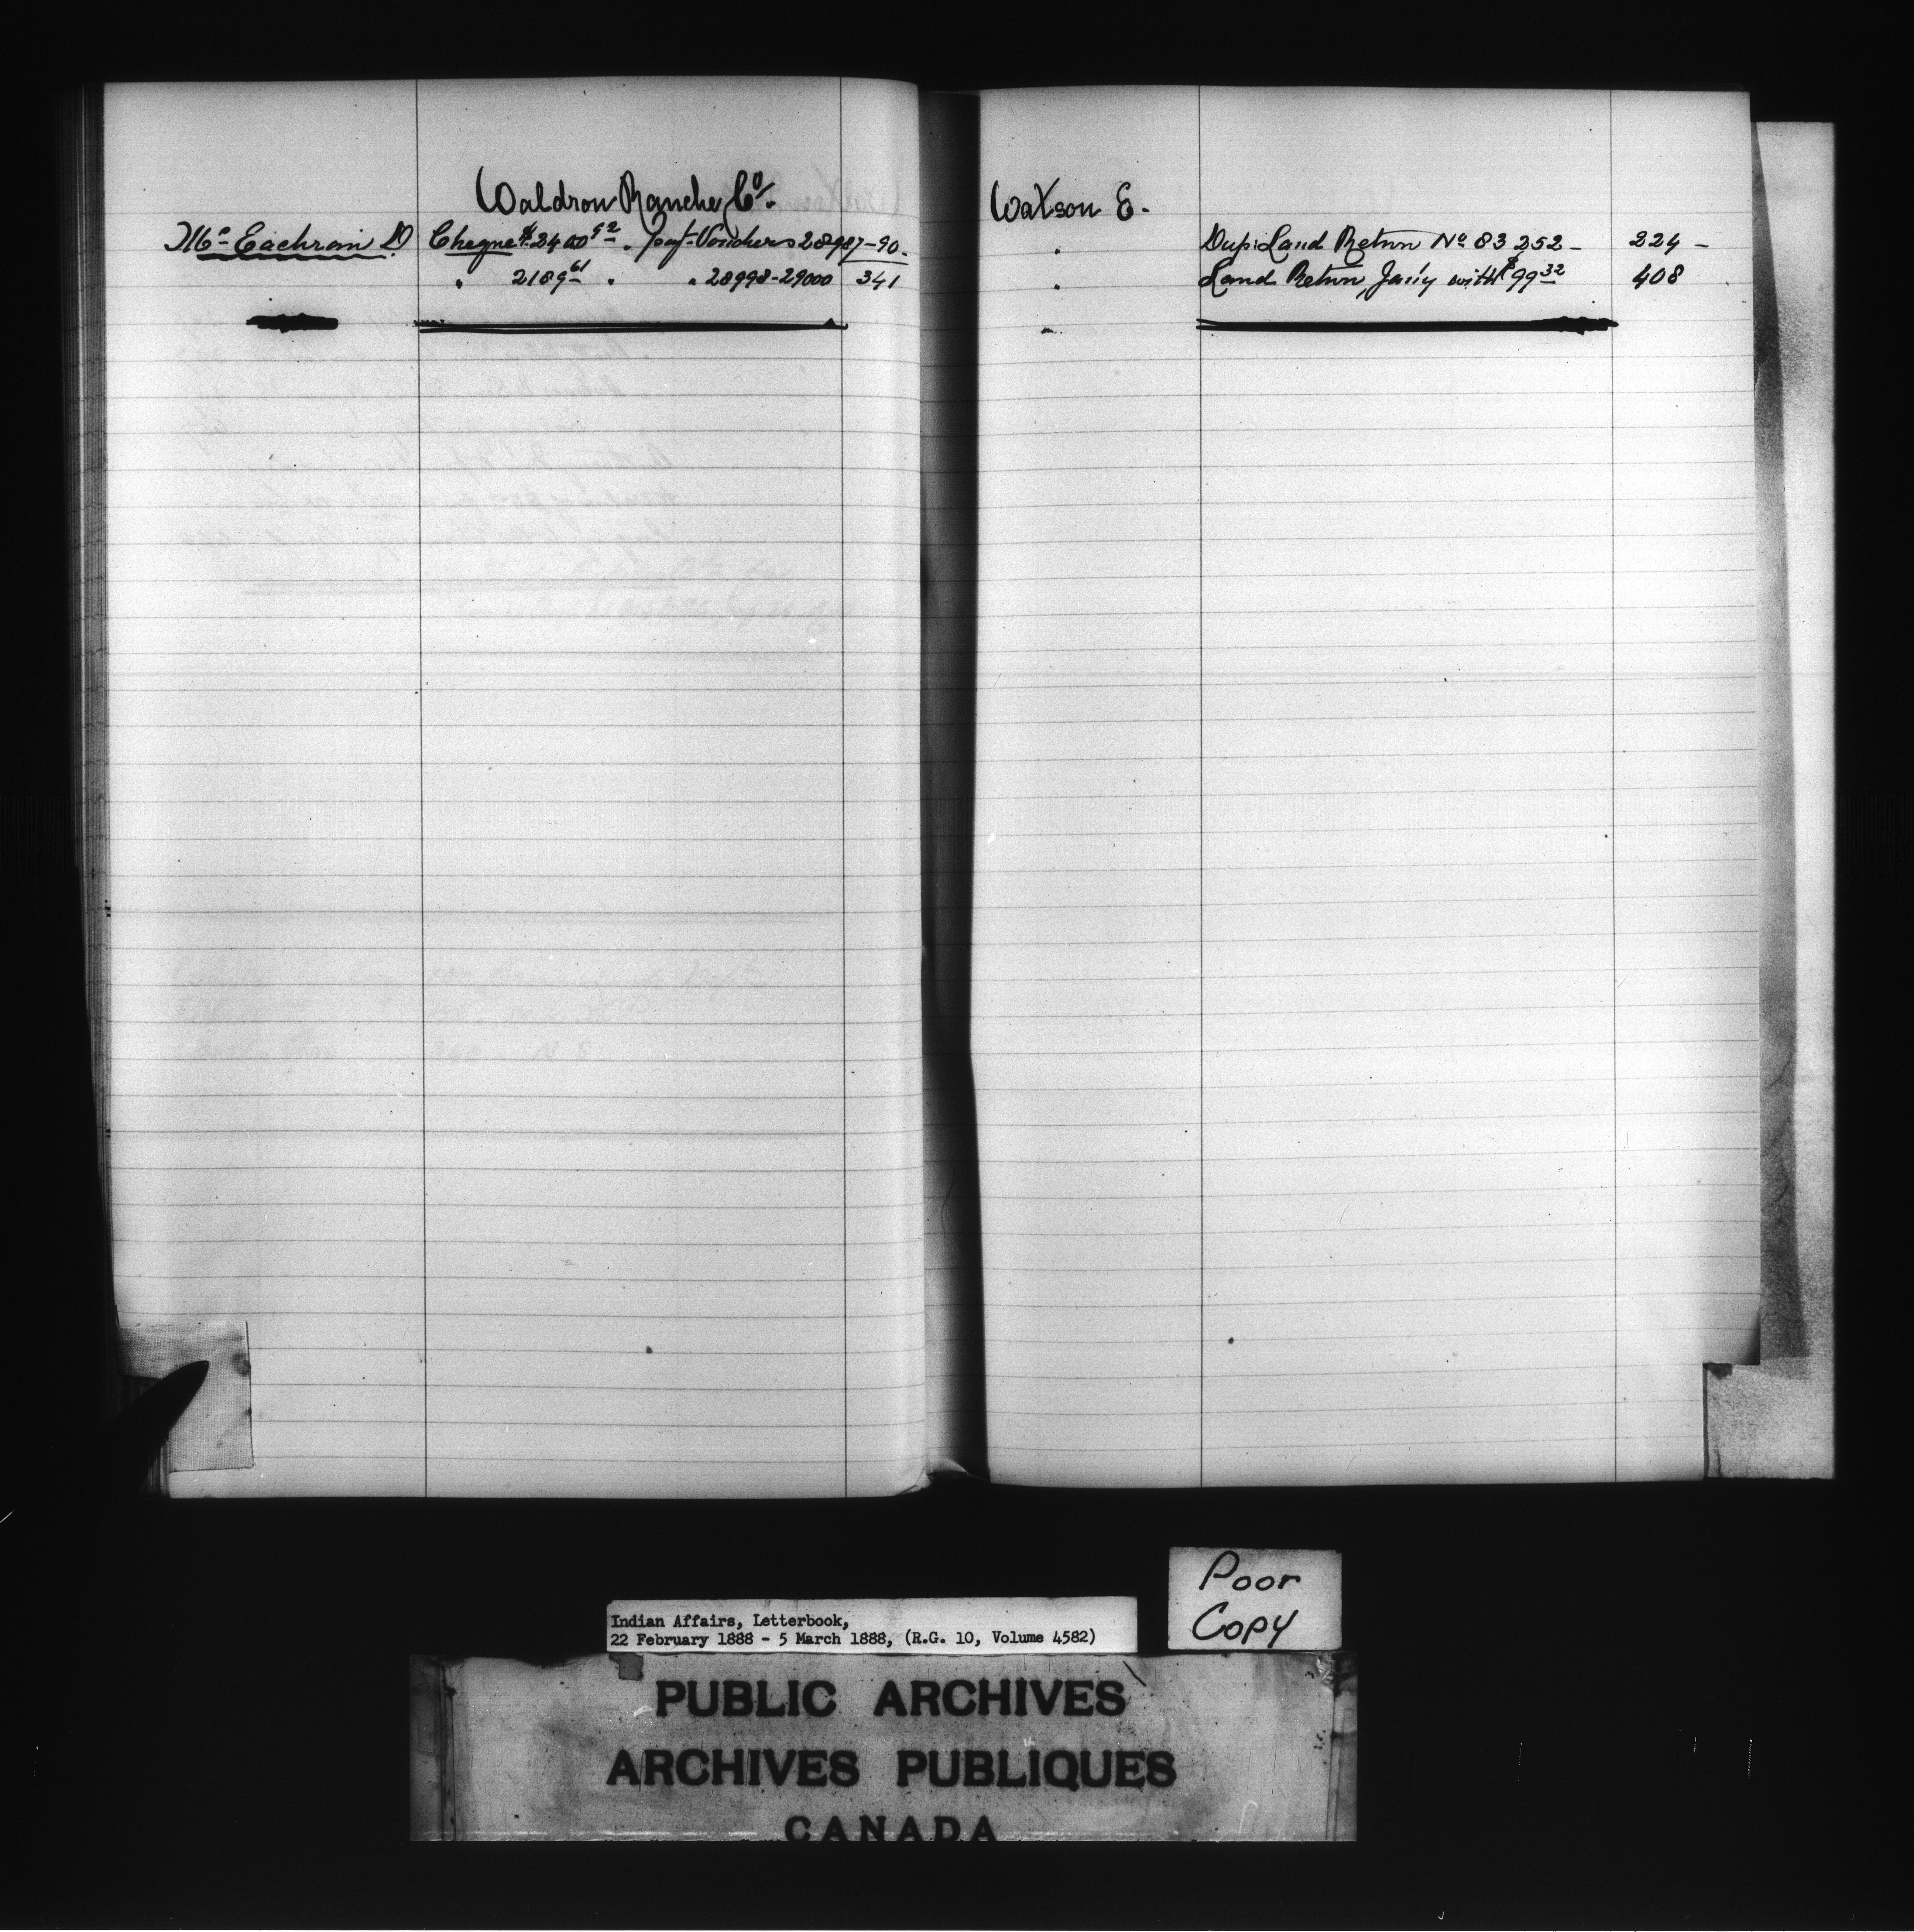 Waldron Ranche Co.
McEachran D. Cheque $2400.92 " pay't Vouchers 28987-90.
" 2189.61 " " 28998-29000 341
Watson E.
" Dup: Land Return No 83252 - 224 -
" Land Return, Jan'y with $99.32 408
Poor
Copy
Indian Affairs, Letterbook,
22 February 1888 - 5 March 1888, (R.G. 10, Volume 4582)
PUBLIC ARCHIVES
ARCHIVES PUBLIQUES
CANADA